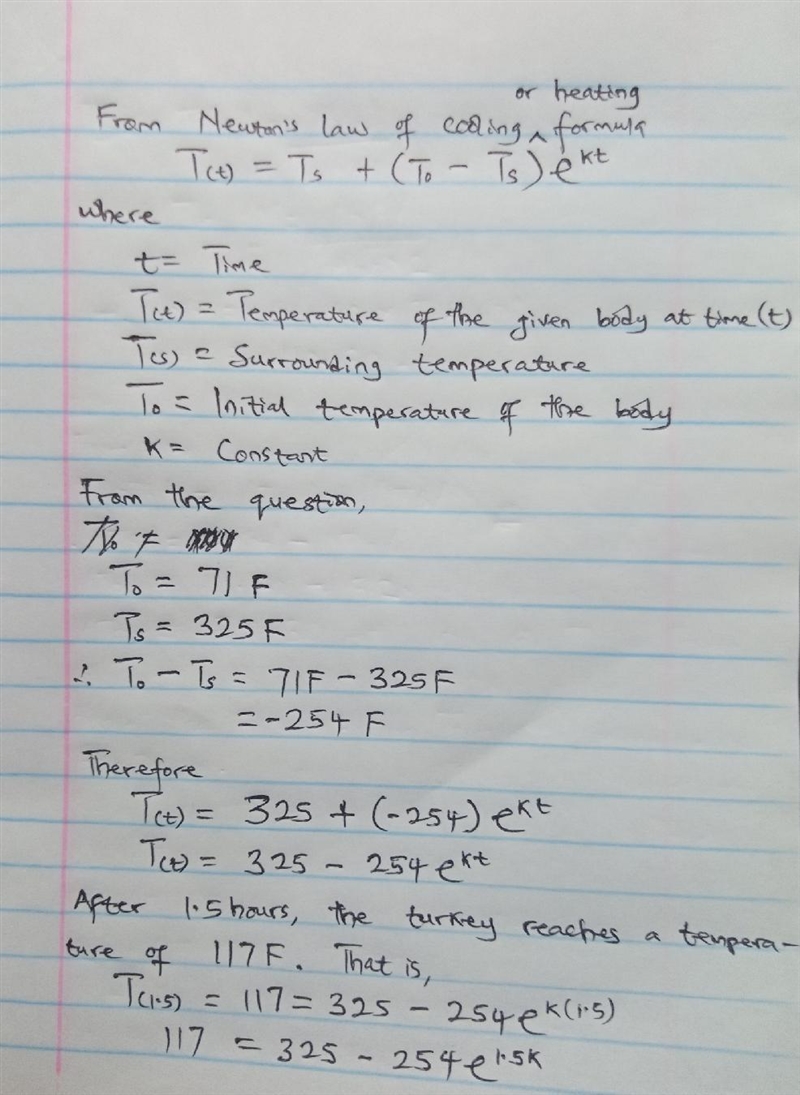 or heating
From Newton's law of cooling ^ formula
T(t) = Ts + (To - Ts) e^kt
where
t = Time
T(t) = Temperature of the given body at time (t)
T(s) = Surrounding temperature
To = Initial temperature of the body
K = Constant
From the question,
To = 71 F
Ts = 325 F
∴ To - Ts = 71F - 325F
= -254 F
Therefore
T(t) = 325 + (-254) e^kt
T(t) = 325 - 254 e^kt
After 1.5 hours, the turkey reaches a tempera-
ture of 117 F. That is,
T(1.5) = 117 = 325 - 254 e^k(1.5)
117 = 325 - 254 e^1.5k